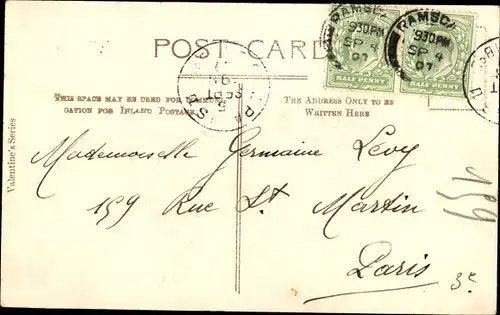 POST CARD
RAMSG
9 30 PM
SP 4
07
HALF PENNY
RAMSG
9 30 PM
SP 4
07
HALF PENNY
THIS SPACE MAY BE USED FOR COMMUNI-
CATION FOR INLAND POSTAGE
THE ADDRESS ONLY TO BE
WRITTEN HERE
Valentine's Series
Mademoiselle Germaine Levy
159 Rue St. Martin
Paris
159
3e